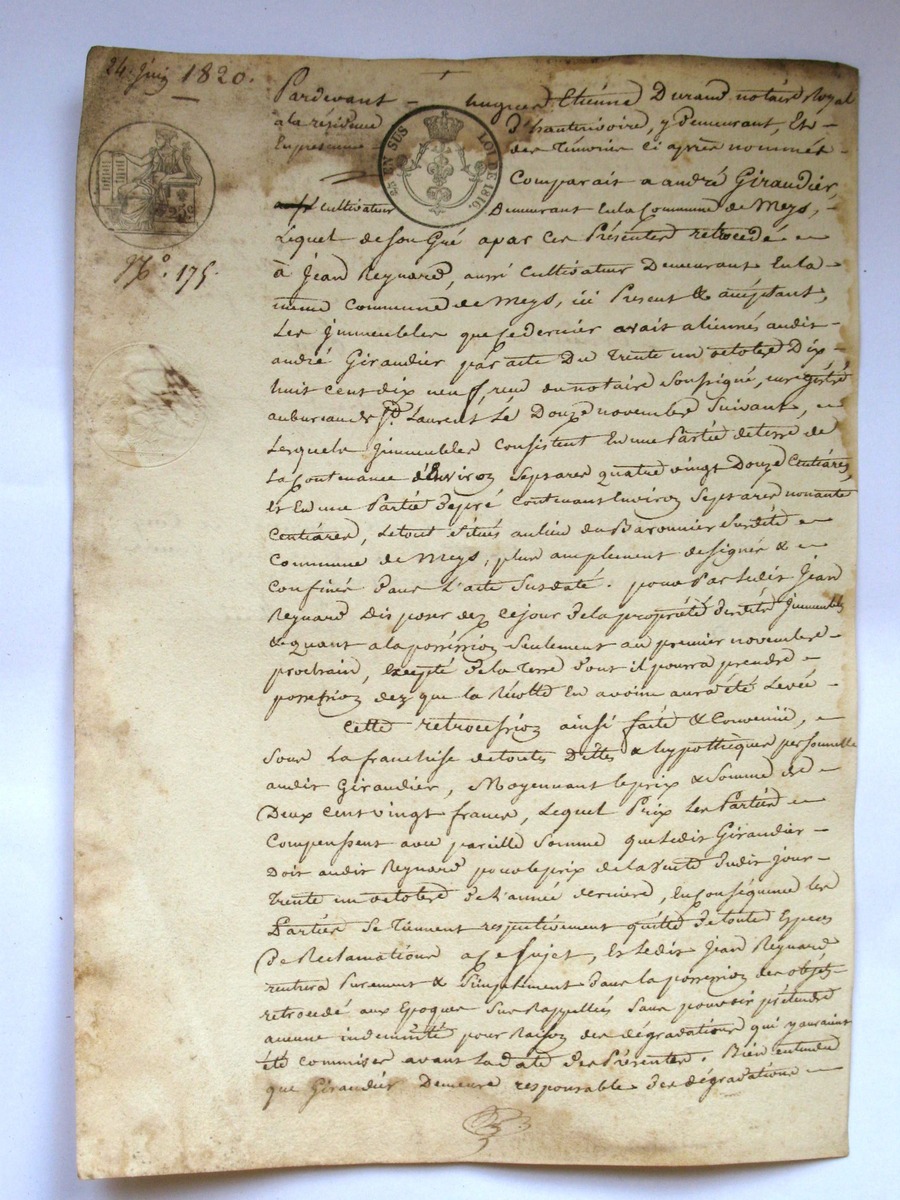 24 Juin 1820.
Pardevant hugues Etiénne Durand notáire Royal
a la résidence d'hauterivoire, y demeurant, Et
En présence des Témoins Ci après nommés
EN SUS LOI DE 1816.
Comparait a andré Giraudier,
cultivateur Demeurant En la Commune de Meys,
Lequel de son Gré a par Ces Présentes retrocedé
N.º 175.
à Jean Reynard, aussi Cultivateur Demeurant En la
même Commune de Meys, ici Present & acceptant,
Les Immeubles que Ce dernier avait aliennés audit
andré Giraudier par acte Du Trente un octobre Dix
huit Cent dix neuf, reçu du notaire Soussigné, enregistré
au bureau de St. Laurent Lé Douze novembre Suivant,
Lesquels Immeubles Consistent En une Partie de terre de
La Contenance d'Environ Sept ares quatre vingt Douze Centiares,
Et En une Partie de pré Contenant Environ Sept ares nonante
Centiares, Le tout Situés au lieu du Baronnier Susdite
Commune de Meys, plus amplement designés &
Confinés Dans L'acte Susdaté. pour Par Ledit Jean
Reynard Disposer dez Ce jour de la propriété desdits Immeubles
& quant a la possession Seulement au premier novembre
prochain, Excepté de la Terre dont il pourra prendre
possession dez que la Récolte En avoine aura été Levée
Cette retrocession ainsi faite & Convenue,
Sous La franchise de toutes Dettes & hypothèques personnelles
audit Giraudier, Moyennant le prix & Somme de
Deux Cent vingt francs, Lequel Prix Les Parties
Compensent avec pareille Somme que Ledit Giraudier
Doit audit Reynard pour le prix de la Vente dudit jour
Trente un octobre de L'année derniere, En Conséquence les
Parties Se Tiennent respectivement quittes de toutes Especes
De Reclamations a Ce Sujet, Et Ledit Jean Reynard
rentrera Purement & Simplement dans la possession des objets
retrocedé aux Epoques Sus Rappellés Sans pouvoir prétendre
aucune indemnité pour Raison des dégradations qui y auraient
été commises avant La daté des Présentes. Bien entendu
que Giraudier Demeure responsable des dégradations